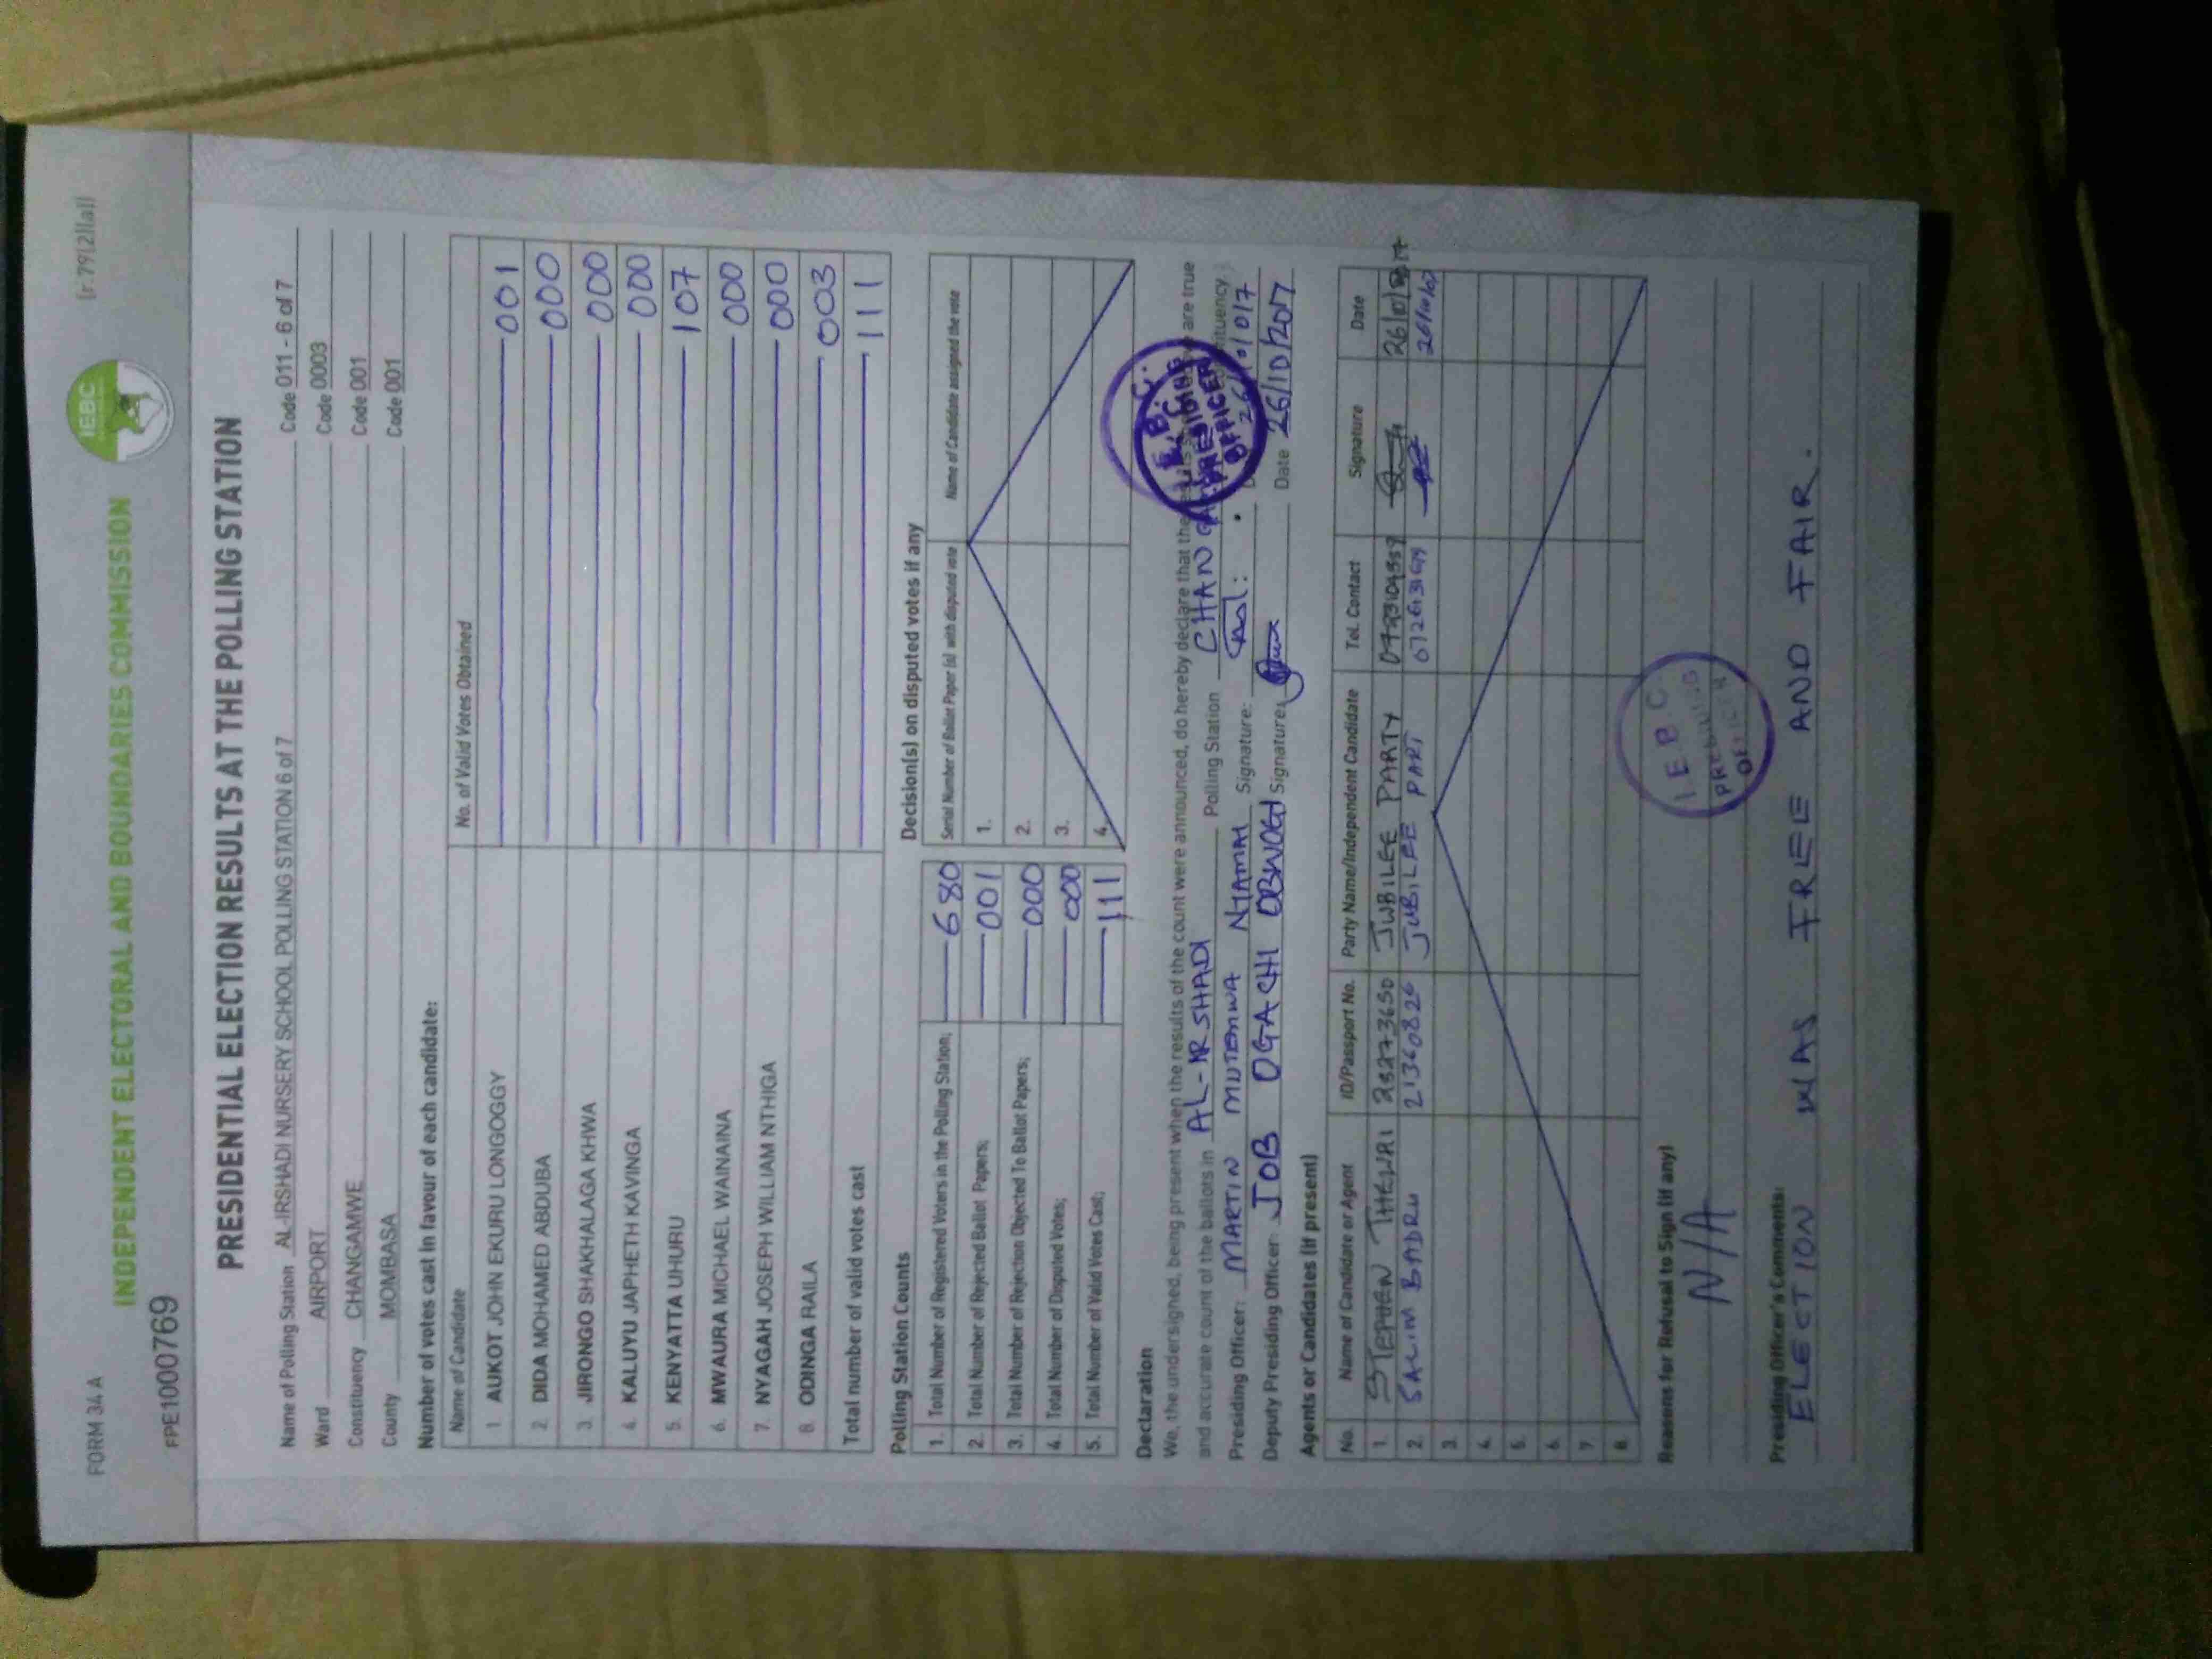 FORM 34 A
[r.79(2)(a)]
INDEPENDENT ELECTORAL AND BOUNDARIES COMMISSION
IEBC
FPE1000769
PRESIDENTIAL ELECTION RESULTS AT THE POLLING STATION
Name of Polling Station AL-IRSHADI NURSERY SCHOOL POLLING STATION 6 of 7 Code 011 - 6 of 7
Ward AIRPORT Code 0003
Constituency CHANGAMWE Code 001
County MOMBASA Code 001
Number of votes cast in favour of each candidate:
Name of Candidate No. of Valid Votes Obtained
1 AUKOT JOHN EKURU LONGOGGY 001
2. DIDA MOHAMED ABDUBA 000
3. JIRONGO SHAKHALAGA KHWA 000
4. KALUYU JAPHETH KAVINGA 000
5. KENYATTA UHURU 107
6. MWAURA MICHAEL WAINAINA 000
7. NYAGAH JOSEPH WILLIAM NTHIGA 000
8. ODINGA RAILA 003
Total number of valid votes cast 111
Polling Station Counts
1. Total Number of Registered Voters in the Polling Station; 680
2. Total Number of Rejected Ballot Papers; 001
3. Total Number of Rejection Objected To Ballot Papers; 000
4. Total Number of Disputed Votes; 000
5. Total Number of Valid Votes Cast; 111
Decision(s) on disputed votes if any
Serial Number of Ballot Paper (s) with disputed vote Name of Candidate assigned the vote
1.
2.
3.
4.
Declaration
We, the undersigned, being present when the results of the count were announced, do hereby declare that the are true
and accurate count of the ballots in AL-IRSHADI Polling Station
Presiding Officer: MARTIN Signature:
Deputy Presiding Officer: JOB OGACHI Signature: Date 26/10/2017
I.E.B.C.
PRESIDING
OFFICER
Agents or Candidates (if present)
No. Name of Candidate or Agent ID/Passport No. Party Name/Independent Candidate Tel. Contact Signature Date
1. STEPHEN JUBILEE PARTY
2. SALIM BADRU 21360826 JUBILEE PART
3.
4.
5.
6.
7.
8.
Reasons for Refusal to Sign (if any)
N/A
I E B C
PRESIDING
OFFICER
Presiding Officer's Comments:
ELECTION WAS FREE AND FAIR.